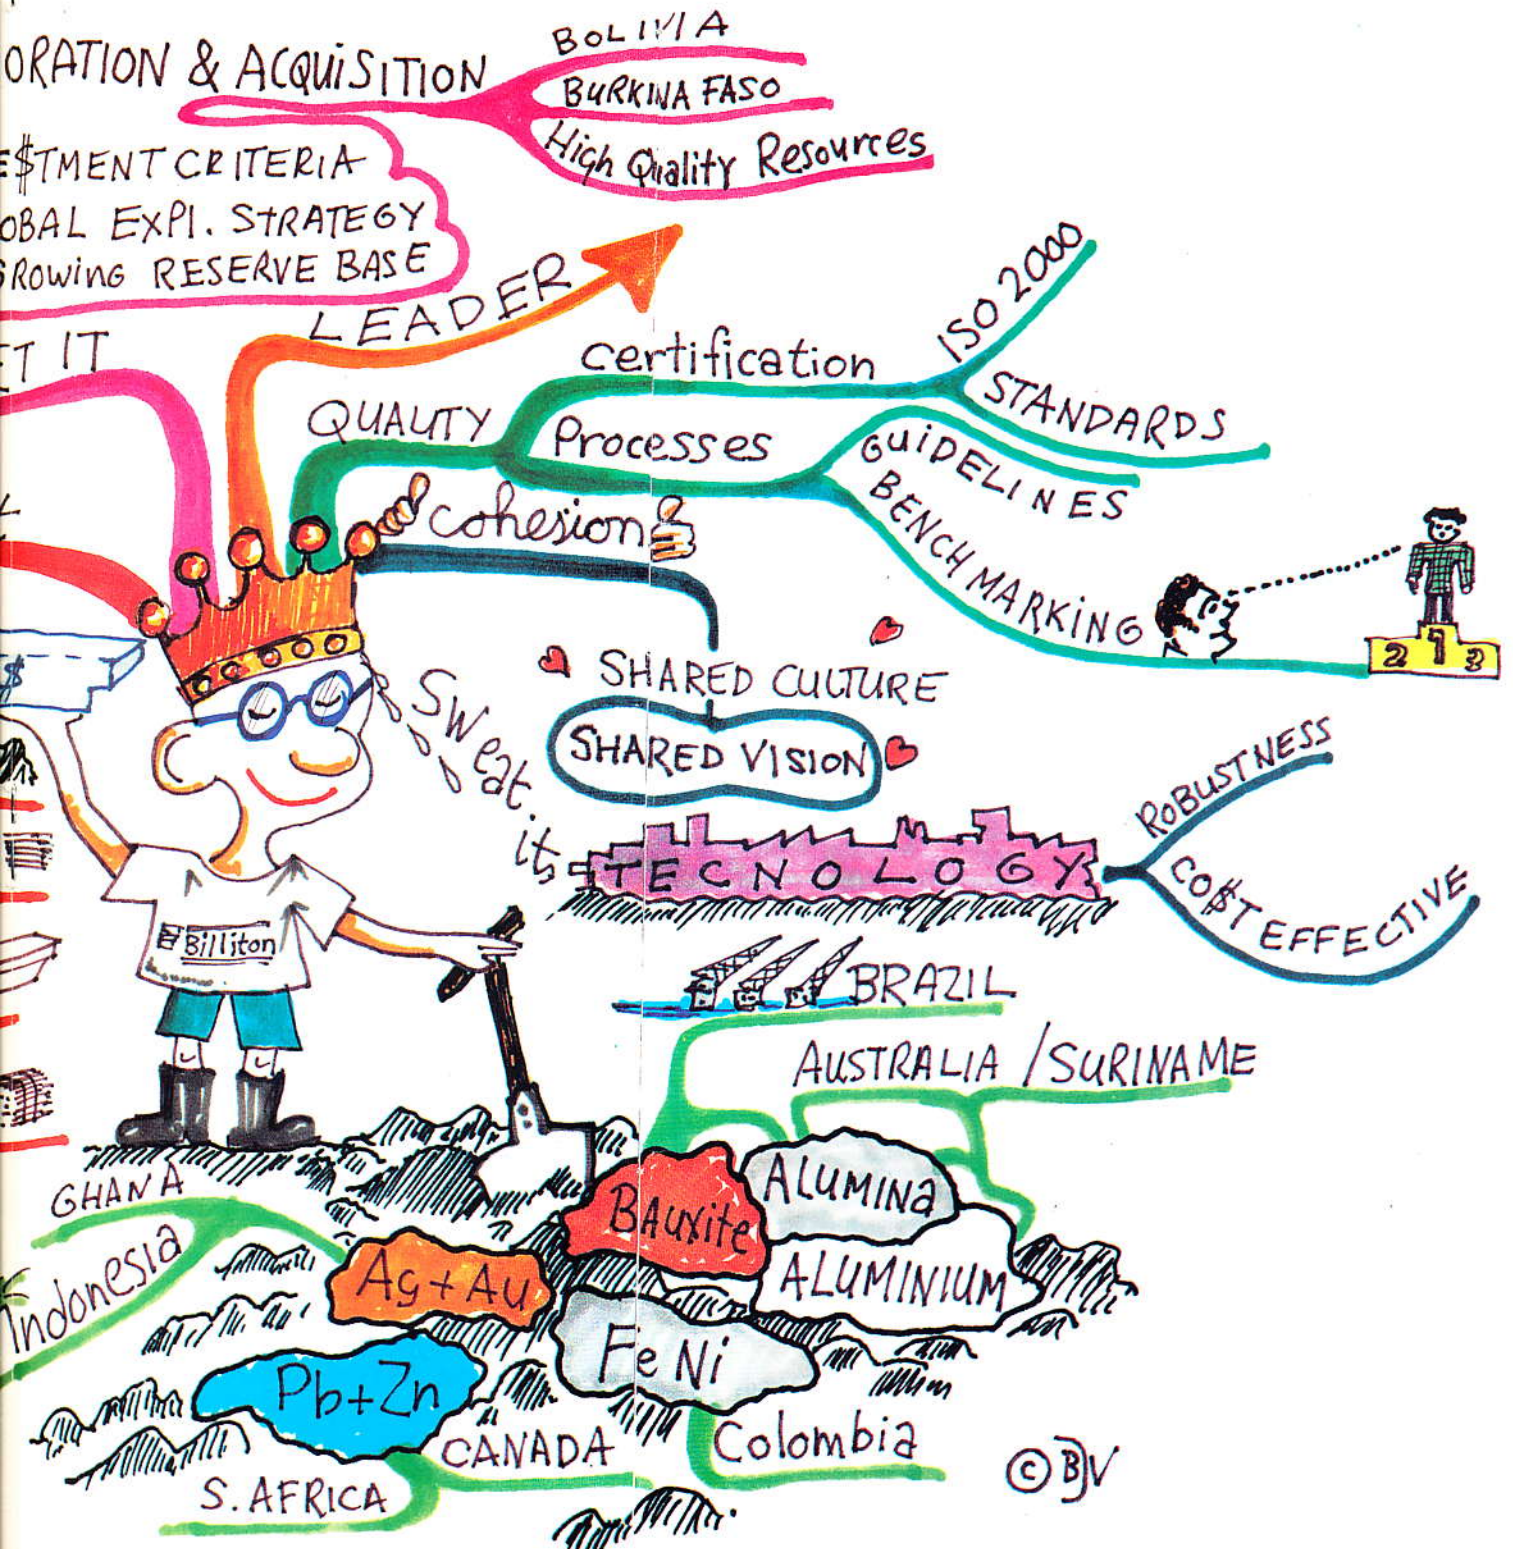 ORATION & ACQUISITION
BOLIVIA
BURKINA FASO
High Quality Resources
E$TMENT CRITERIA
OBAL EXPl. STRATEGY
GROWING RESERVE BASE
LEADER
ET IT
QUALITY
certification
ISO 2000
STANDARDS
Processes
GUIDELINES
BENCH MARKING
2 1 3
cohesion
SHARED CULTURE
SHARED VISION
$
Sweat its
TECNOLOGY
ROBUSTNESS
CO$T EFFECTIVE
Billiton
BRAZIL
AUSTRALIA / SURINAME
BAuxite
ALUMINA
ALUMINIUM
GHANA
Indonesia
Ag + Au
Fe Ni
Pb + Zn
CANADA
S. AFRICA
Colombia
© BJV